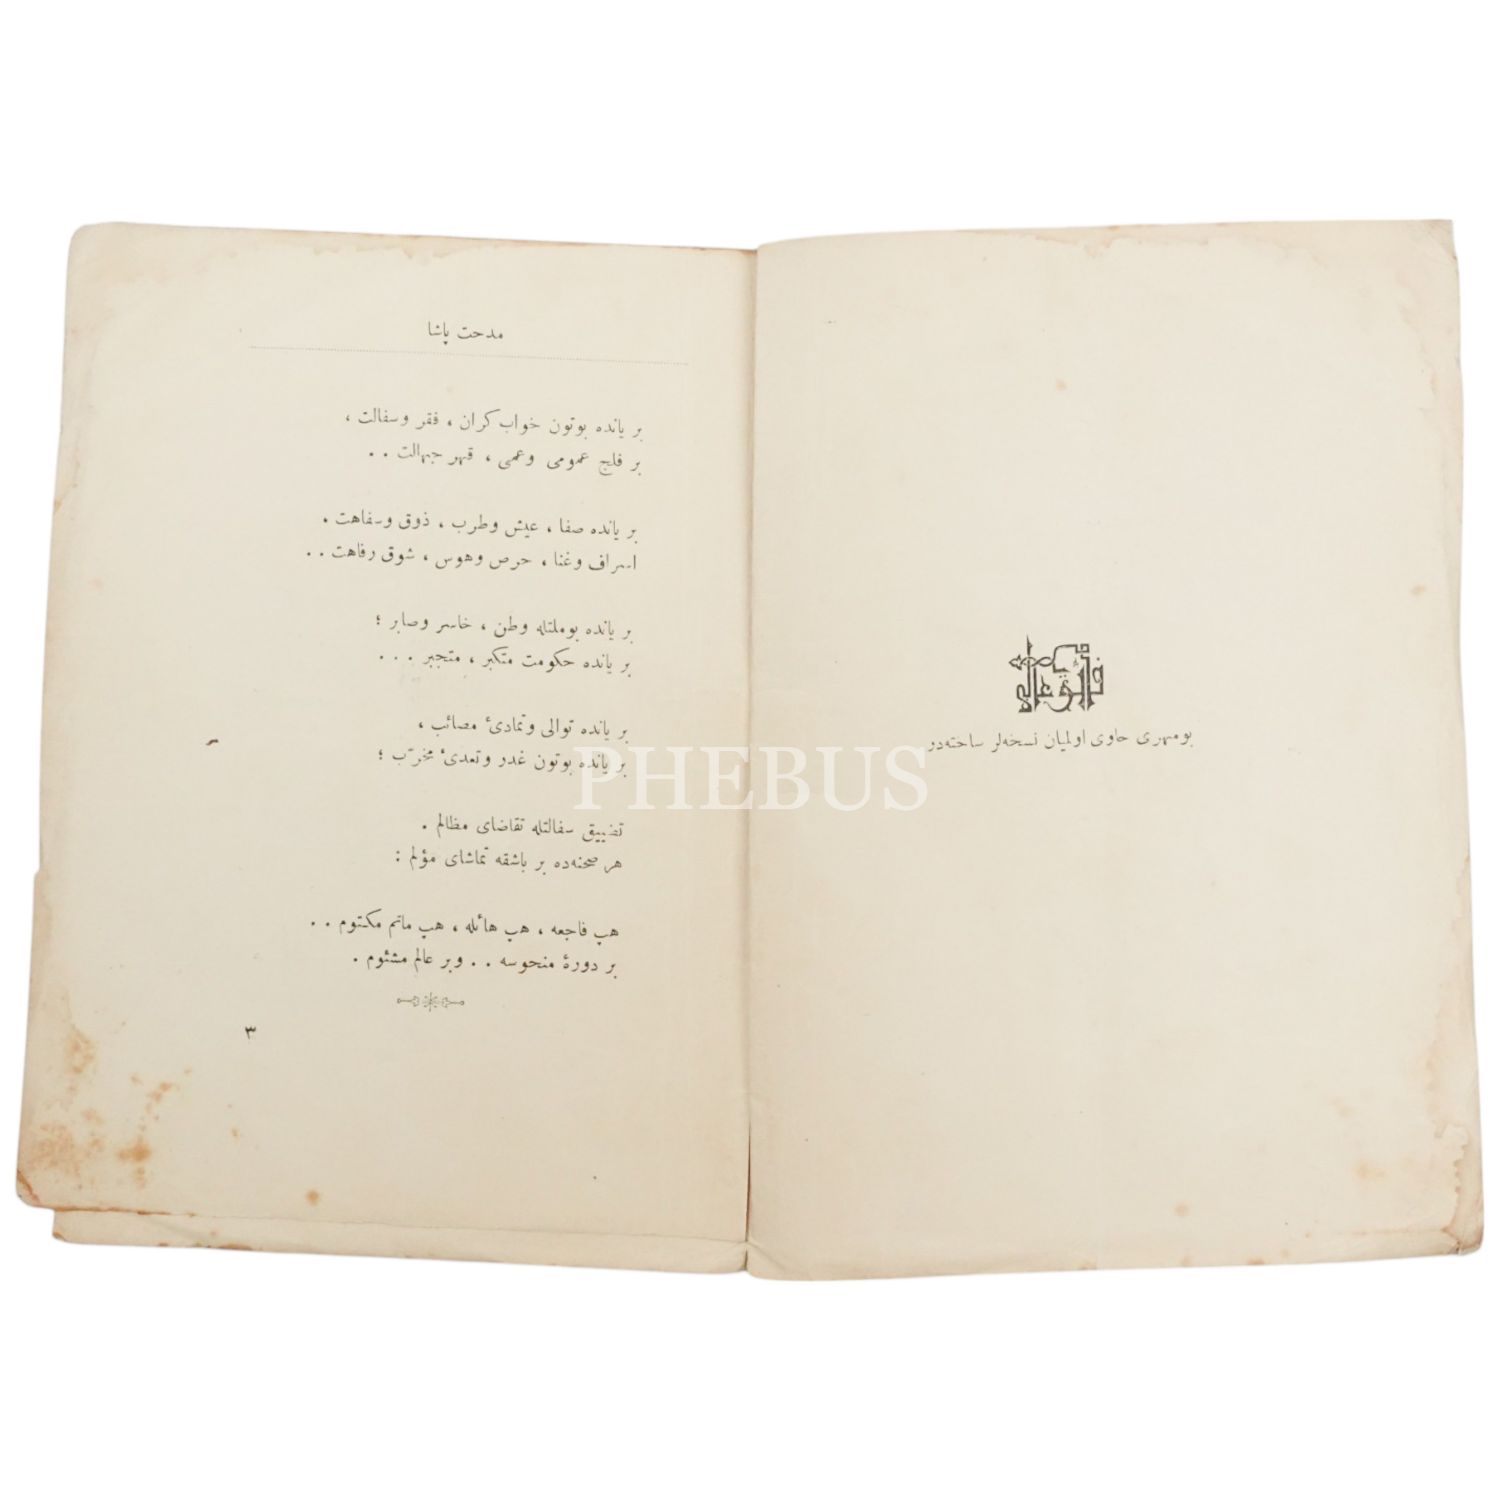 بو مهری حاوی اولمیان نسخه‌لر ساخته‌در
مدحت پاشا
بر یانده بوتون خواب کران ، فقر وسفالت ،
بر فلج عمومی وعمی ، قهر جهالت . .
بر یانده صفا ، عیش وطرب ، ذوق وسفاهت ،
اسراف وغنا ، حرص وهوس ، شوق رفاهت . .
بر یانده بوملتله وطن ، خاسر وصابر ؛
بر یانده حکومت متکبر ، متجبر . . .
بر یانده توالی وتمادیٔ مصائب ،
بر یانده بوتون غدر وتعدیٔ مخرّب ؛
تضییق سفالتله تقاضای مظالم .
هر صحنه‌ده بر باشقه تماشای مؤلم :
هپ فاجعه ، هپ هائله ، هپ ماتم مکتوم . .
بر دورهٔ منحوسه . . وبر عالم مشئوم .
٣
PHEBUS